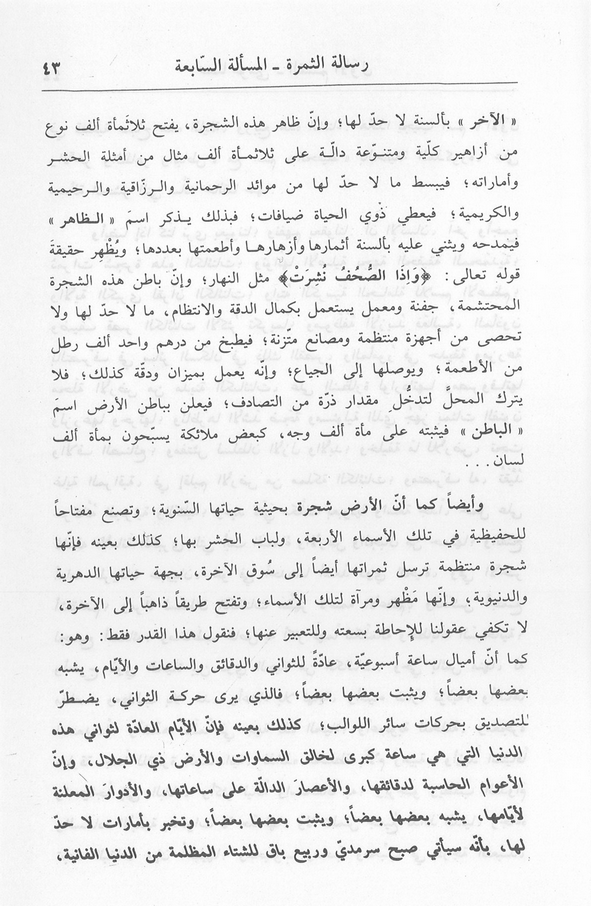 رسالة الثمرة ـ المسألة السّابعة ٤٣
« الآخر » بألسنة لا حدّ لها؛ وإنّ ظاهر هذه الشجرة، يفتح ثلاثمأة ألف نوع
من أزاهير كلّية ومتنوّعة دالّة على ثلاثمأة ألف مثال من أمثلة الحشر
وأماراته؛ فيبسط ما لا حدّ لها من موائد الرحمانية والرزّاقية والرحيمية
والكريمية؛ فيعطي ذوي الحياة ضيافات؛ فبذلك يذكر اسمَ « الظاهر »
فيمدحه ويثني عليه بألسنة أثمارها وأزهارها وأطعمتها بعددها؛ ويُظْهر حقيقةَ
قوله تعالى: ﴿وَإذَا الصُّحُفُ نُشِرَتْ﴾ مثل النهار؛ وإنّ باطن هذه الشجرة
المحتشمة، جفنة ومعمل يستعمل بكمال الدقة والانتظام، ما لا حدّ لها ولا
تحصى من أجهزة منتظمة ومصانع متّزنة؛ فيطبخ من درهم واحد ألف رطل
من الأطعمة؛ ويوصلها إلى الجياع؛ وإنّه يعمل بميزان ودقّة كذلك؛ فلا
يترك المحلّ لتدخّل مقدار ذرّة من التصادف؛ فيعلن بباطن الأرض اسمَ
« الباطن » فيثبته على مأة ألف وجه، كبعض ملائكة يسبحون بمأة ألف
لسان...
وأيضاً كما أنّ الأرض شجرة بحيثية حياتها السّنوية؛ وتصنع مفتاحاً
للحفيظية في تلك الأسماء الأربعة، ولباب الحشر بها؛ كذلك بعينه فإنّها
شجرة منتظمة ترسل ثمراتها أيضاً إلى سُوق الآخرة، بجهة حياتها الدهرية
والدنيوية؛ وإنّها مَظْهر ومرآة لتلك الأسماء؛ وتفتح طريقاً ذاهباً إلى الآخرة،
لا تكفي عقولنا للإحاطة بسعته وللتعبير عنها؛ فنقول هذا القدر فقط: وهو:
كما أنّ أميال ساعة أسبوعيّة، عادّةً للثواني والدقائق والساعات والأيّام، يشبه
بعضها بعضاً؛ ويثبت بعضها بعضاً؛ فالذي يرى حركة الثواني، يضطرّ
للتصديق بحركات سائر اللوالب؛ كذلك بعينه فإنّ الأيّام العادّة لثواني هذه
الدنيا التي هي ساعة كبرى لخالق السماوات والأرض ذي الجلال، وإنّ
الأعوام الحاسبة لدقائقها، والأعصارَ الدالّة على ساعاتها، والأدوارَ المعلنة
لأيّامها، يشبه بعضها بعضاً؛ ويثبت بعضها بعضاً؛ وتخبر بأمارات لا حدّ
لها، بأنّه سيأتي صبح سرمديّ وربيع باق للشتاء المظلمة من الدنيا الفانية،